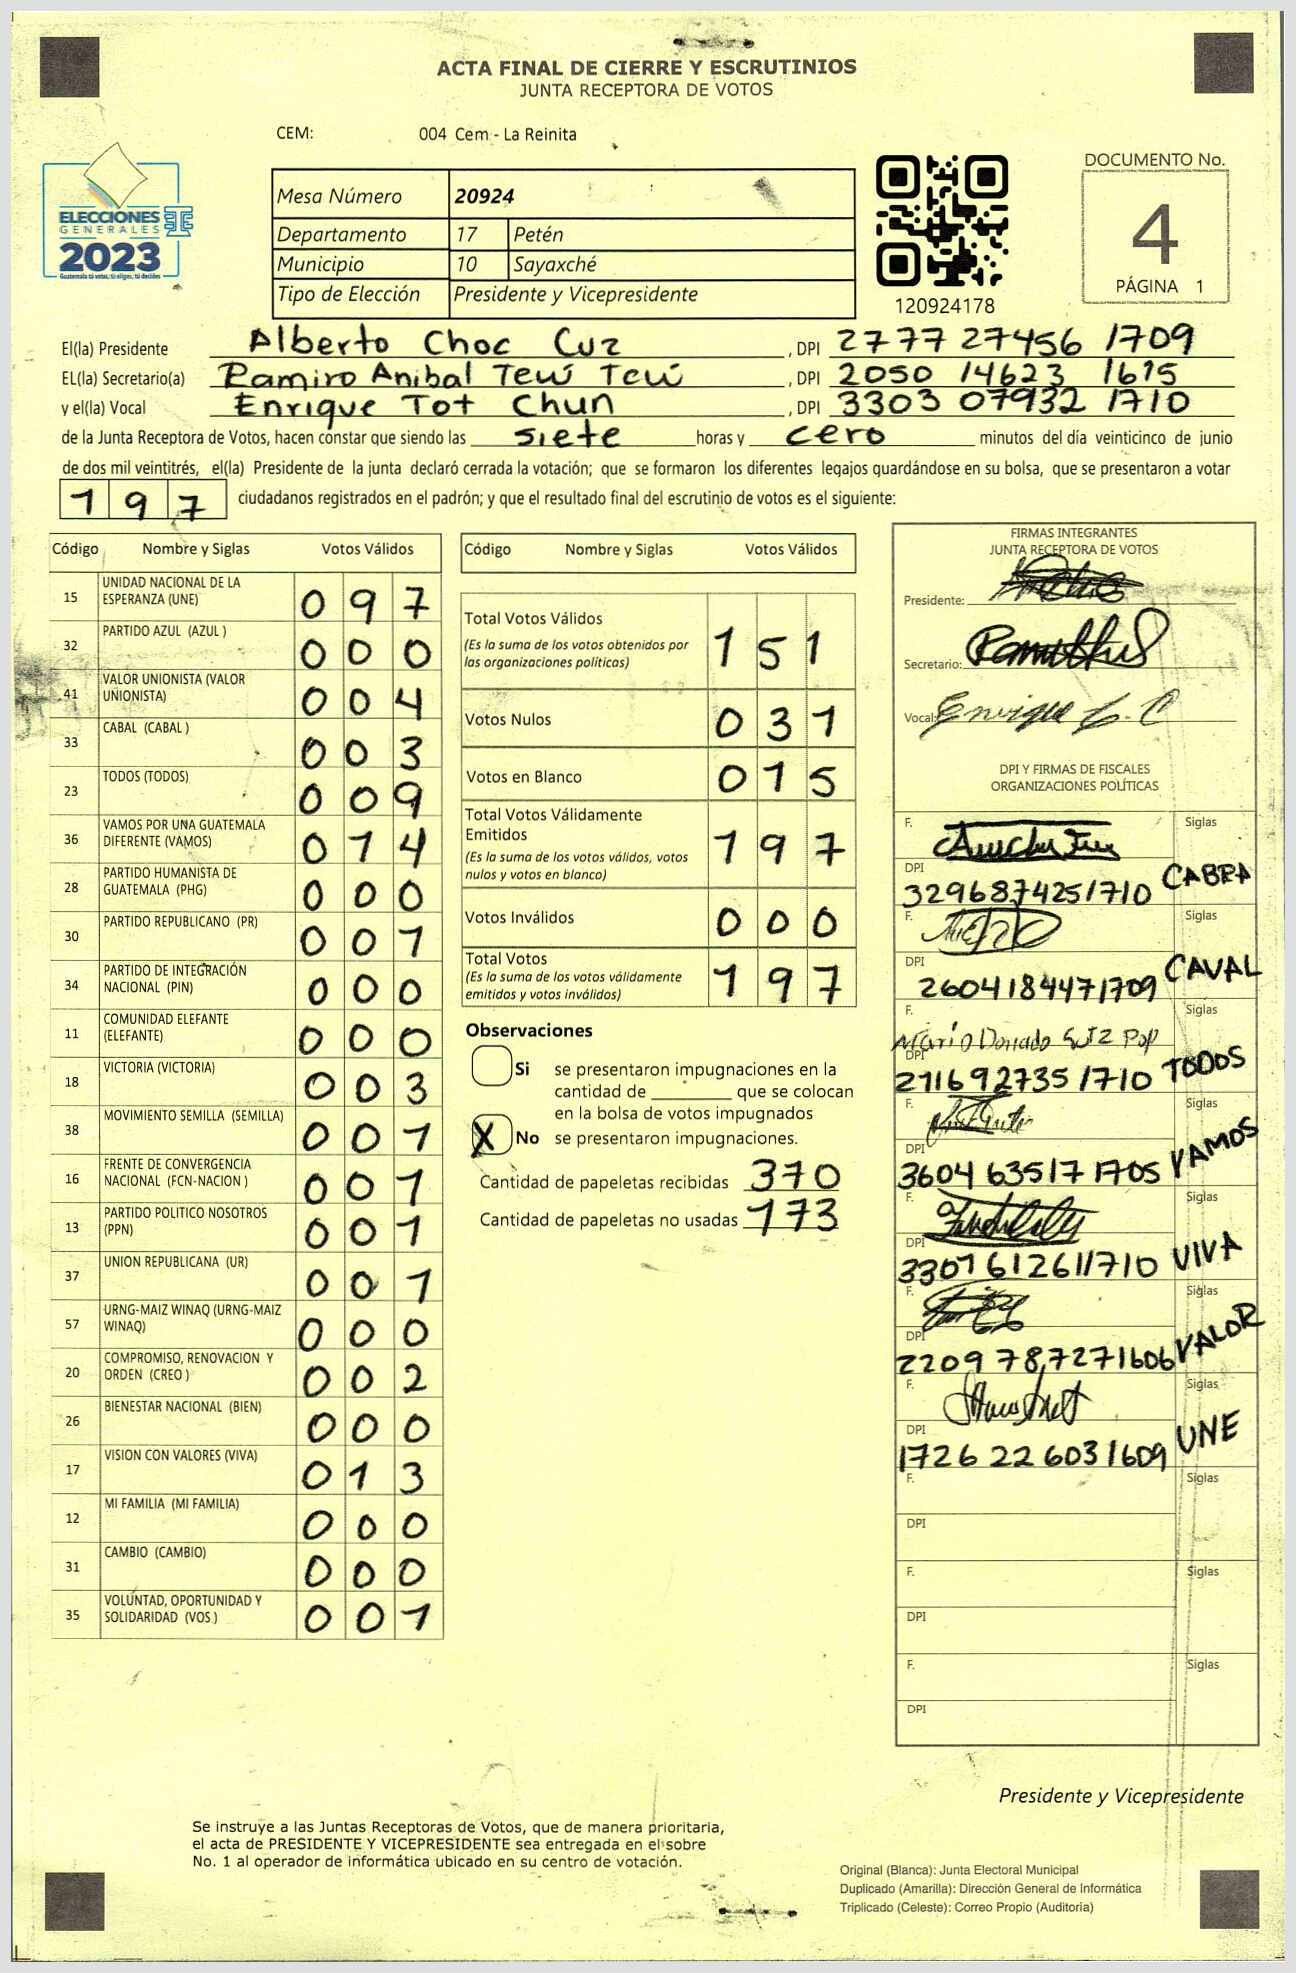 ACTA FINAL DE CIERRE Y ESCRUTINIOS
JUNTA RECEPTORA DE VOTOS
CEM: 004 Cem - La Reinita
ELECCIONES
GENERALES
2023
Guatemala tú votas, tú eliges, tú decides
Mesa Número 20924
Departamento 17 Petén
Municipio 10 Sayaxché
Tipo de Elección Presidente y Vicepresidente
120924178
DOCUMENTO No.
4
PÁGINA 1
El(la) Presidente Alberto Choc Cuz , DPI 2777 27456 1709
EL(la) Secretario(a) Ramiro Anibal Teuí Teuí , DPI 2050 14623 1615
y el(la) Vocal Enrique Tot Chun , DPI 3303 07932 1710
de la Junta Receptora de Votos, hacen constar que siendo las siete horas y cero minutos del día veinticinco de junio
de dos mil veintitrés, el(la) Presidente de la junta declaró cerrada la votación; que se formaron los diferentes legajos guardándose en su bolsa, que se presentaron a votar
197 ciudadanos registrados en el padrón; y que el resultado final del escrutinio de votos es el siguiente:
Código Nombre y Siglas Votos Válidos
15 UNIDAD NACIONAL DE LA ESPERANZA (UNE) 097
32 PARTIDO AZUL (AZUL ) 000
41 VALOR UNIONISTA (VALOR UNIONISTA) 004
33 CABAL (CABAL ) 003
23 TODOS (TODOS) 009
36 VAMOS POR UNA GUATEMALA DIFERENTE (VAMOS) 014
28 PARTIDO HUMANISTA DE GUATEMALA (PHG) 000
30 PARTIDO REPUBLICANO (PR) 001
34 PARTIDO DE INTEGRACIÓN NACIONAL (PIN) 000
11 COMUNIDAD ELEFANTE (ELEFANTE) 000
18 VICTORIA (VICTORIA) 003
38 MOVIMIENTO SEMILLA (SEMILLA) 001
16 FRENTE DE CONVERGENCIA NACIONAL (FCN-NACION ) 001
13 PARTIDO POLITICO NOSOTROS (PPN) 001
37 UNION REPUBLICANA (UR) 001
57 URNG-MAIZ WINAQ (URNG-MAIZ WINAQ) 000
20 COMPROMISO, RENOVACION Y ORDEN (CREO ) 002
26 BIENESTAR NACIONAL (BIEN) 000
17 VISION CON VALORES (VIVA) 013
12 MI FAMILIA (MI FAMILIA) 000
31 CAMBIO (CAMBIO) 000
35 VOLUNTAD, OPORTUNIDAD Y SOLIDARIDAD (VOS.) 001
Código Nombre y Siglas Votos Válidos
Total Votos Válidos 151
(Es la suma de los votos obtenidos por
las organizaciones políticas)
Votos Nulos 031
Votos en Blanco 015
Total Votos Válidamente
Emitidos 197
(Es la suma de los votos válidos, votos
nulos y votos en blanco)
Votos Inválidos 000
Total Votos 197
(Es la suma de los votos válidamente
emitidos y votos inválidos)
Observaciones
Si se presentaron impugnaciones en la
cantidad de ________ que se colocan
en la bolsa de votos impugnados
X No se presentaron impugnaciones.
Cantidad de papeletas recibidas 370
Cantidad de papeletas no usadas 173
FIRMAS INTEGRANTES
JUNTA RECEPTORA DE VOTOS
Presidente:
Secretario:
Vocal: Enrique
DPI Y FIRMAS DE FISCALES
ORGANIZACIONES POLÍTICAS
F. Siglas
DPI 3296874251710 CABRA
F. Siglas
DPI 2604184471709 CAVAL
F. Mario Donado Sutz Pop Siglas
DPI 2716927351710 TODOS
F. Siglas
DPI 3604 63517 1705 VAMOS
F. Siglas
DPI 3301612611710 VIVA
F. Siglas
DPI 2209 787271606 VALOR
F. Siglas
DPI 1726 22 6031609 UNE
F. Siglas
DPI
F. Siglas
DPI
F. Siglas
DPI
Presidente y Vicepresidente
Se instruye a las Juntas Receptoras de Votos, que de manera prioritaria,
el acta de PRESIDENTE Y VICEPRESIDENTE sea entregada en el sobre
No. 1 al operador de informática ubicado en su centro de votación.
Original (Blanca): Junta Electoral Municipal
Duplicado (Amarilla): Dirección General de Informática
Triplicado (Celeste): Correo Propio (Auditoría)